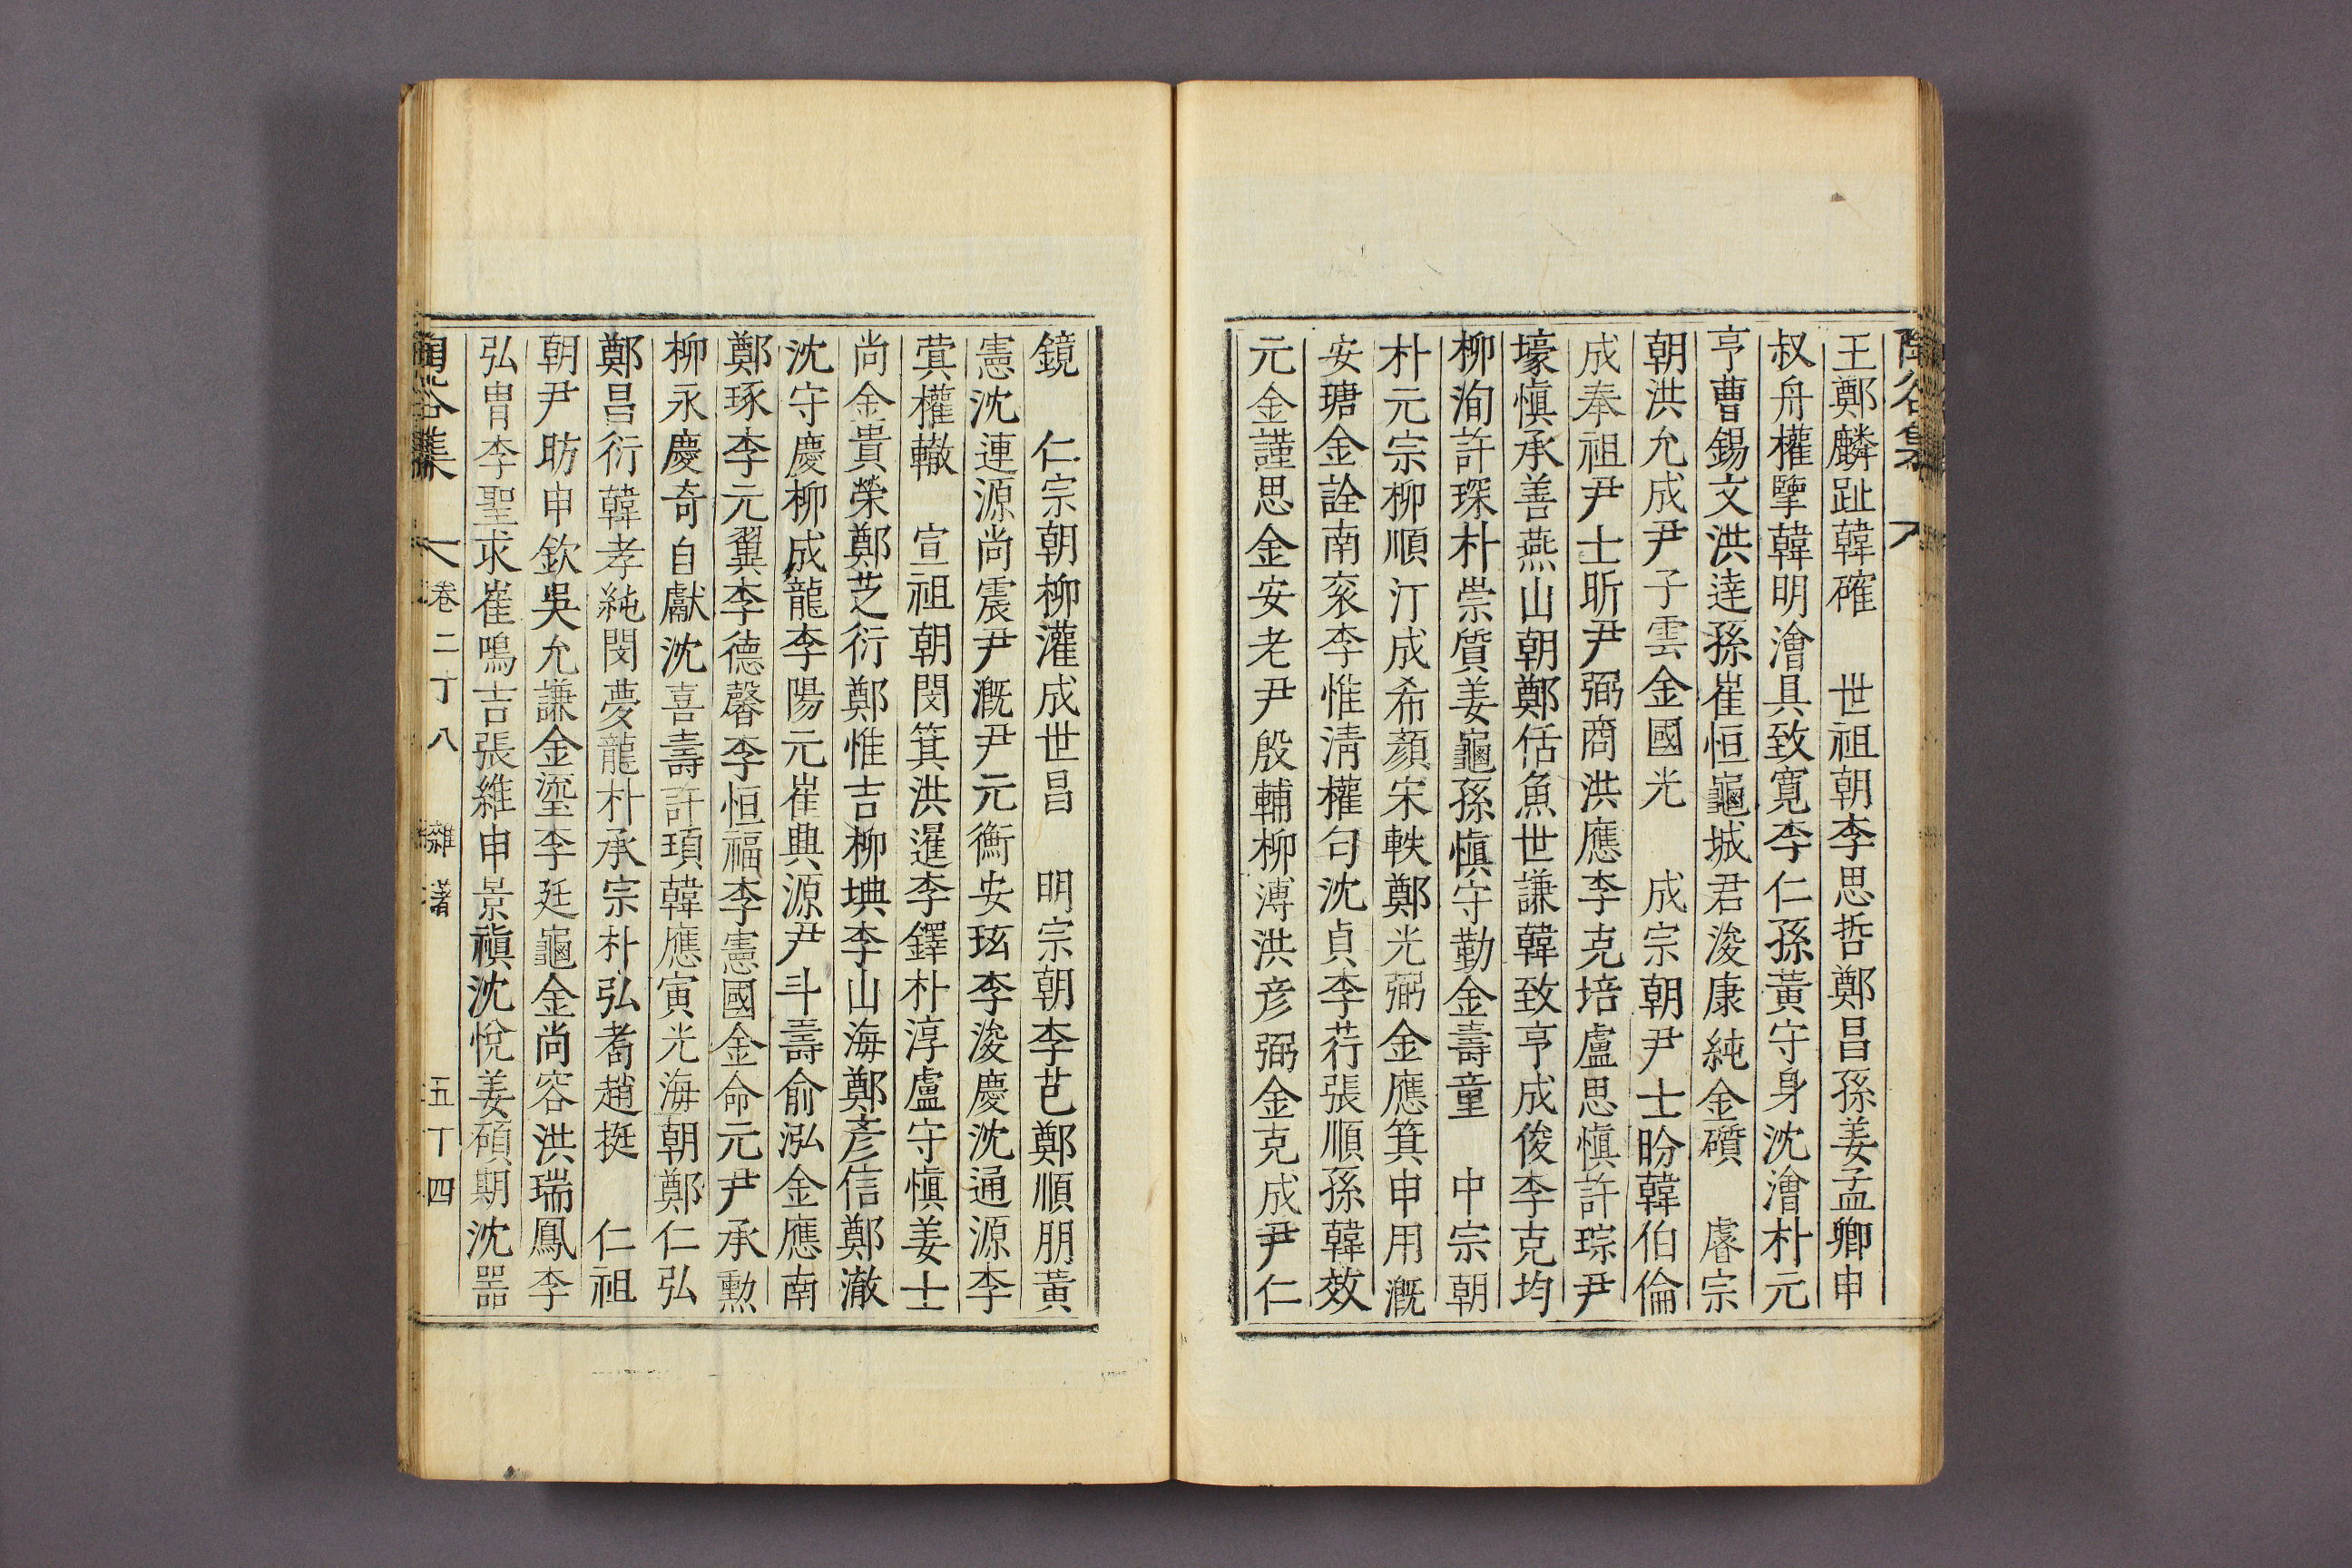 王鄭麟趾韓確　世祖朝李思哲鄭昌孫姜孟卿申
叔舟權擥韓明澮具致寬李仁孫黃守身沈澮朴元
亨曹錫文洪達孫崔恒龜城君浚康純金礩　睿宗
朝洪允成尹子雲金國光　成宗朝尹士昐韓伯倫
成奉祖尹士昕尹弼商洪應李克培盧思愼許琮尹
壕愼承善燕山朝鄭佸魚世謙韓致亨成俊李克均
柳洵許琛朴崇質姜龜孫愼守勤金壽童　中宗朝
朴元宗柳順汀成希顏宋軼鄭光弼金應箕申用漑
安瑭金詮南袞李惟淸權勻沈貞李荇張順孫韓效
元金謹思金安老尹殷輔柳溥洪彦弼金克成尹仁
鏡　仁宗朝柳灌成世昌　明宗朝李芑鄭順朋黃
憲沈連源尚震尹漑尹元衡安玹李浚慶沈通源李
蓂權轍　宣祖朝閔箕洪暹李鐸朴淳盧守愼姜士
尚金貴榮鄭芝衍鄭惟吉柳㙉李山海鄭彦信鄭澈
沈守慶柳成龍李陽元崔興源尹斗壽俞泓金應南
鄭琢李元翼李德馨李恒福李憲國金命元尹承勳
柳永慶奇自獻沈喜壽許頊韓應寅光海朝鄭仁弘
鄭昌衍韓孝純閔夢龍朴承宗朴弘耉趙挺　仁祖
朝尹昉申欽吳允謙金瑬李廷龜金尚容洪瑞鳳李
弘冑李聖求崔鳴吉張維申景禛沈悅姜碩期沈器
卷二丁八　雜著　五丁四